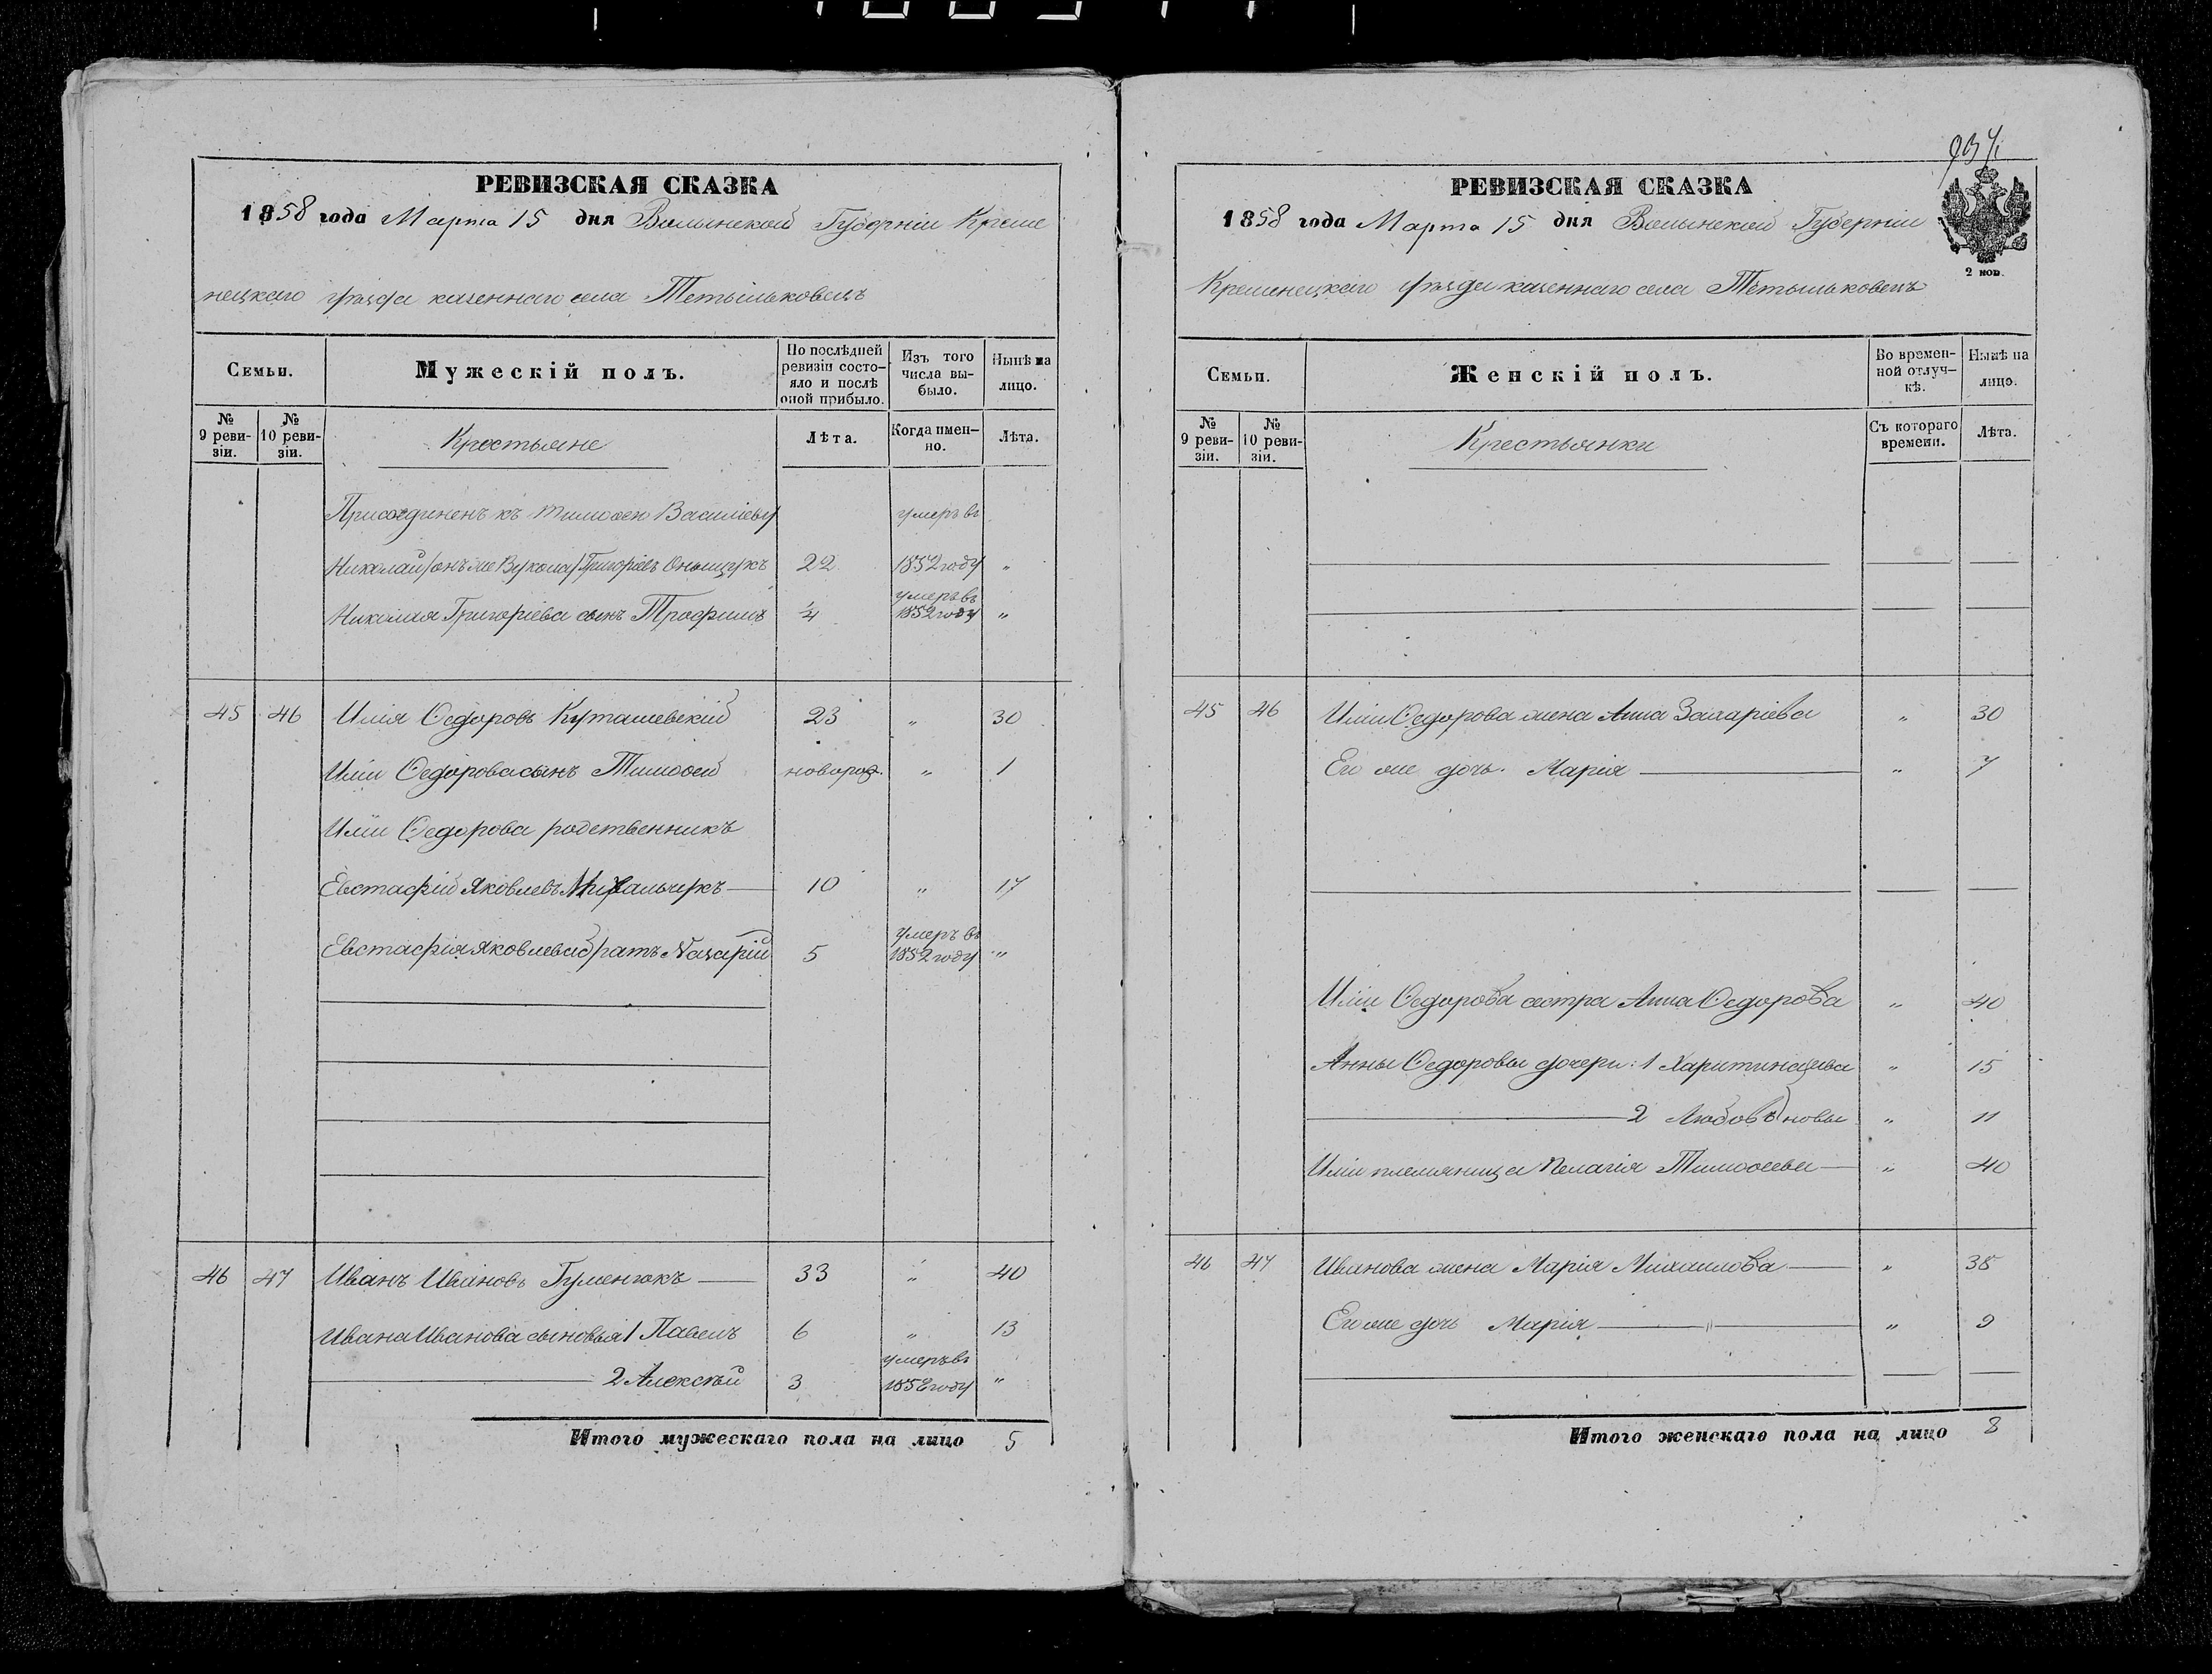 РЕВИЗСКАЯ СКАЗКА
1858 года Марта 15 дня Волынской Губерніи Креме
нецкаго уѣзда казеннаго села Тетыльковецъ
Семьи.
Мужескій полъ.
По послѣдней ревизіи состояло и послѣ оной прибыло.
Изъ того числа выбыло.
Нынѣ на лицо.
№ 9 ревизіи.
№ 10 ревизіи.
Крестьяне
Лѣта.
Когда именно.
Лѣта.
Присоединенъ къ Тимофею Васильеву умеръ въ
Николай /онъ же Вукола/ Григоріевъ Онищукъ 22 1852 году "
Николая Григоріева сынъ Трофимъ 4 умеръ въ 1852 году "
45 46 Илія Ѳедоровъ Куташевскій 23 " 30
Иліи Ѳедорова сынъ Тимоѳей новорож. " 1
Иліи Ѳедорова родственникъ
Евстафій Яковлевъ Михальчукъ 10 " 17
Евстафія Яковлева братъ Назарій 5 умеръ въ 1852 году "
46 47 Иванъ Ивановъ Гуменюкъ 33 " 40
Ивана Иванова сыновья 1 Павелъ 6 " 13
2 Алексѣй 3 умеръ въ 1852 году "
Итого мужескаго пола на лицо 5
РЕВИЗСКАЯ СКАЗКА
1858 года Марта 15 дня Волынской Губерніи
2 коп.
Кременецкаго уѣзда казеннаго села Тетыльковецъ
Семьи.
Женскій полъ.
Во временной отлучкѣ.
Нынѣ на лицо.
№ 9 ревизіи.
№ 10 ревизіи.
Крестьянки
Съ котораго времени.
Лѣта.
45 46 Иліи Ѳедорова жена Анна Захаріева " 30
Его же дочь Марія " 7
Иліи Ѳедорова сестра Анна Ѳедорова " 40
Анны Ѳедоровы дочери: 1 Харитина " 15
2 Любовь " 11
Иліи племяница Пелагія Тимоѳеева " 40
46 47 Иванова жена Марія Михаилова " 38
Его же дочь Марія " 9
Итого женскаго пола на лицо 8